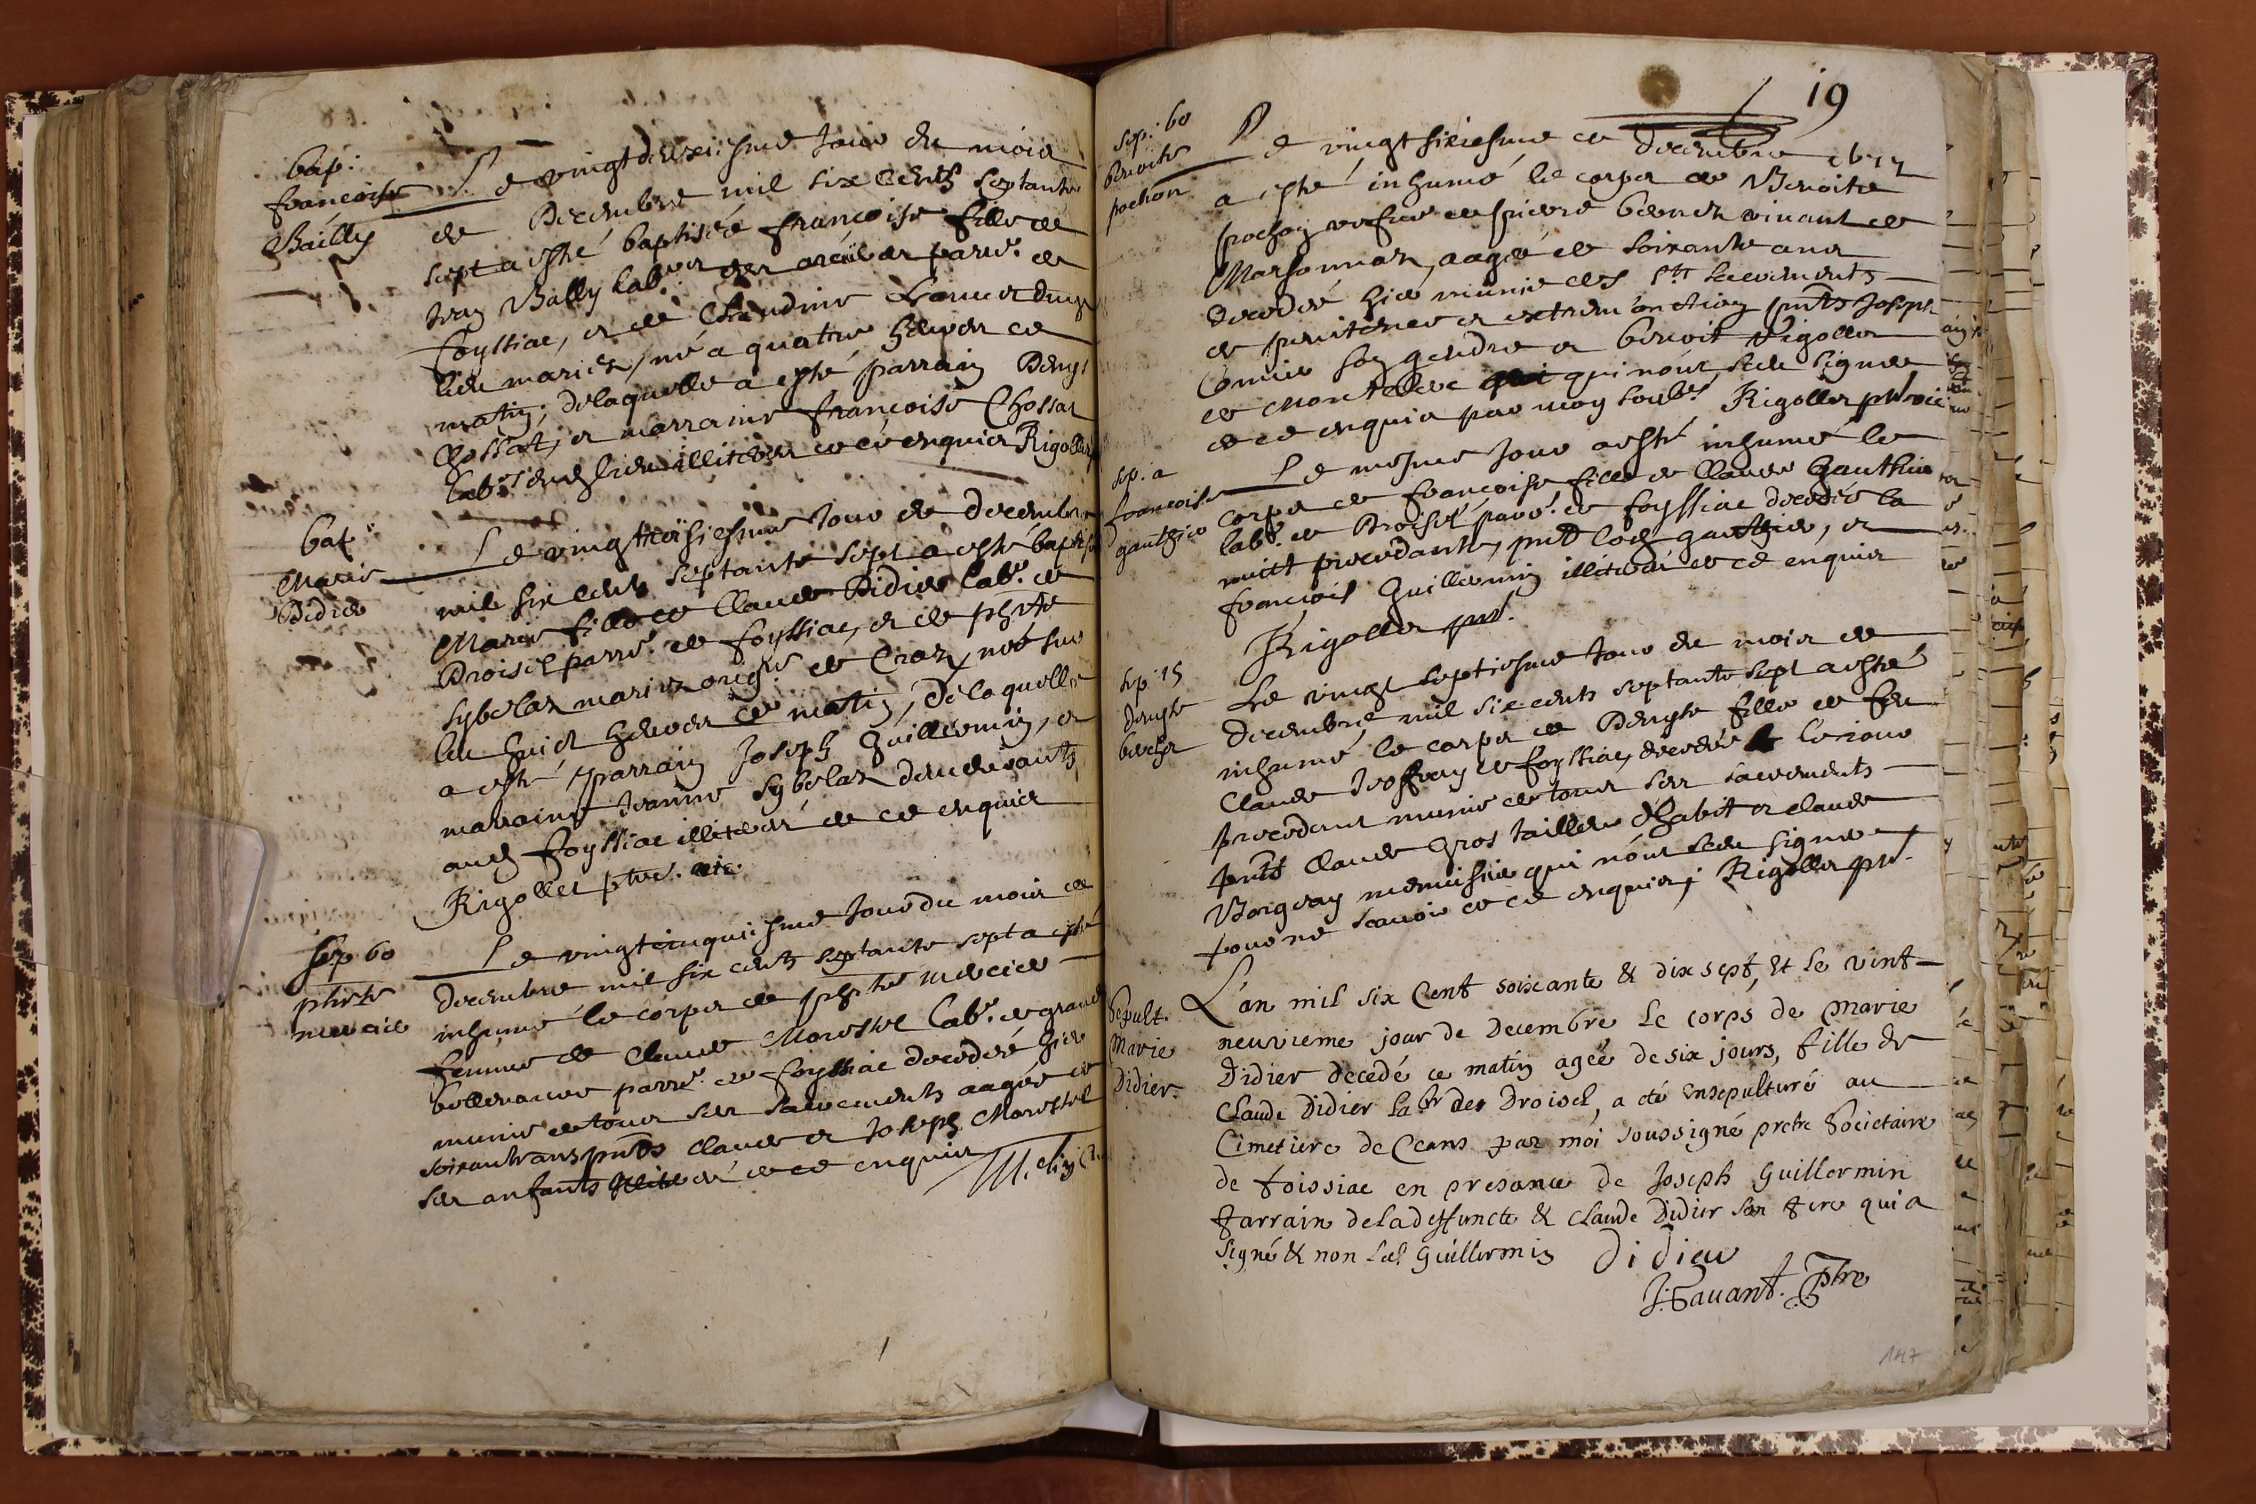 bap:
francoise
Bailly
Le vingtdeuxiesme Jour du mois
de Decembre mil six cents septante
sept a esté baptisée françoise fille de
Jean Bally labr. des parr. de
foyssiac, et de Claudine
lieu mariez, né a quatre heures de
matin; de laquelle a esté parrain Denys
Chossat, et marraine françoise Chossat
labrs. dud. lieu illiteres de ce enquis Rigollet
bap:
Marie
Didier
Le vingtroisiesme Jour de decembre
mil six cents septante sept a esté baptisée
Marie fille de Claude Didier labr. de
Droisel parre. de foyssiac, et de phte
Sybelaz mariez de Craz, née sur
les huict heures de matin, de laquelle
a esté parrain Joseph Guillermin, et
marraine Jeanne Sybelaz demeurants
aud. foyssiac illiteres de ce enquis
Rigollet ptre. vic
sep 60
phte
mercier
Le vingtcinquiesme Jour du mois de
Decembre mil six cents septante sept a esté
inhumé le corps de phte mercier
femme de Claude Morestel labr. de grand
bellevavre parre. de foyssiac decedée hier
munie de tous ses sacrements aagée de
soixante ans pnts Claude et Joseph Morestel
ses enfants illiteres de ce enquis
19
sep: 60
benoite
pochon
Le vingt sixiesme de decembre 1677
a esté inhumé le corps de Benoite
pochon vefve de pierre vivant de
Marsonnaz, aagée de soixante ans
decedée hier munie des sts sacrements
de penitence et extreme onction pnts Joseph
Comier son gendre et benoit Rigollet
de Montelier qui n'ont sceu signer
de ce enquis par moy soubsé Rigollet ptre vic
sep. a
francoise
gauthier
Le mesme Jour a esté inhumé le
corps de francoise fille de Claude Gauthier
labr. de Droisel parr. de foyssiac decedée la
nuict precedante, pnts led. gauthier, et
francois Guillermin illiteres de ce enquis
Rigollet ptre.
sep 15
denyse
Le vingt septiesme Jour du mois de
decembre mil six cents septante sept a esté
inhumé le corps de Denyse fille de feu
Claude Jeoffray de foyssiac, decedée le jour
precedent munie de tous ses sacrements
pnts Claude Gros tailleur d'habit et claude
Borgeay menuisier qui n'ont sceu signer
pour ne scavoir de ce enquis; Rigollet ptre.
Sepult.
Marie
Didier.
L'an mil six Cent soixante & dix sept, et le vint
neuvieme jour de Decembre Le corps de Marie
Didier decedé ce matin ageé de six jours, fille de
Claude Didier labr des Droisel, a eté Ensepulturé au
Cimetiere de Ceans par moi soussigné pretre Societaire
de foissiac en presence de Joseph Guillermin
Parrain de la deffuncte & Claude Didier son Pere qui a
signé & non led. Guillermin Didier
J. Savant. Ptre
147